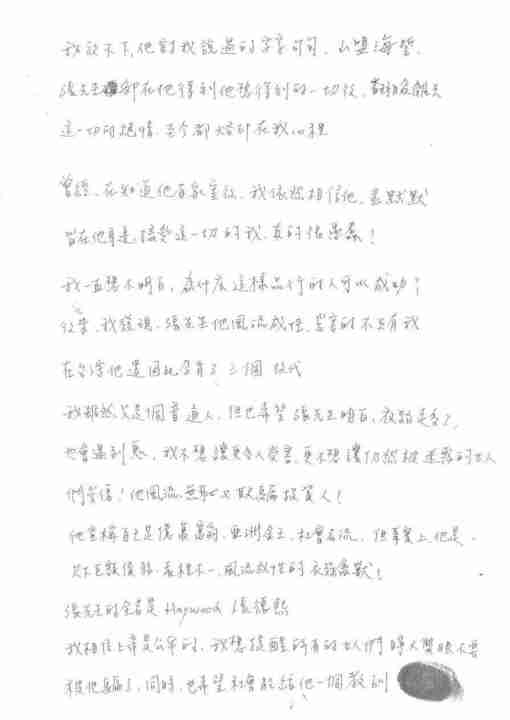 我放不下,他對我說過的字字句句、山盟海誓、
張先生卻在他得到他想得到的一切後、離去
這一切的絕情、至今都烙印在我心裡
曾經、在知道他有家室後、我依然相信他、默默
皆在他身邊、接受這一切的我、真的估愚蠢!
我一直想不明白,為什麼這樣品行的人可以成功?
後來、我發現、張先生他風流成性、受害的不只有我
在台灣他還因此孕有了三個 後代
我雖然只是個普通人、但也希望張先生明白,夜路走多了,
也會遇到鬼、我不想讓更多人受害、更不想讓仍然被迷惑的女人
們受傷!他風流、無恥、又欺騙投資人!
他宣稱自己是億萬富翁、亞洲金王、社會名流、但事實上、他是、
欠下巨額債務、表裡不一、風流放性的衣冠禽獸!
張先生的全名是 Haywood 張德熙
我相信上帝是公平的、我想提醒所有的女人們 睜大雙眼不要
被他騙了、同時、也希望社會能給他一個教訓